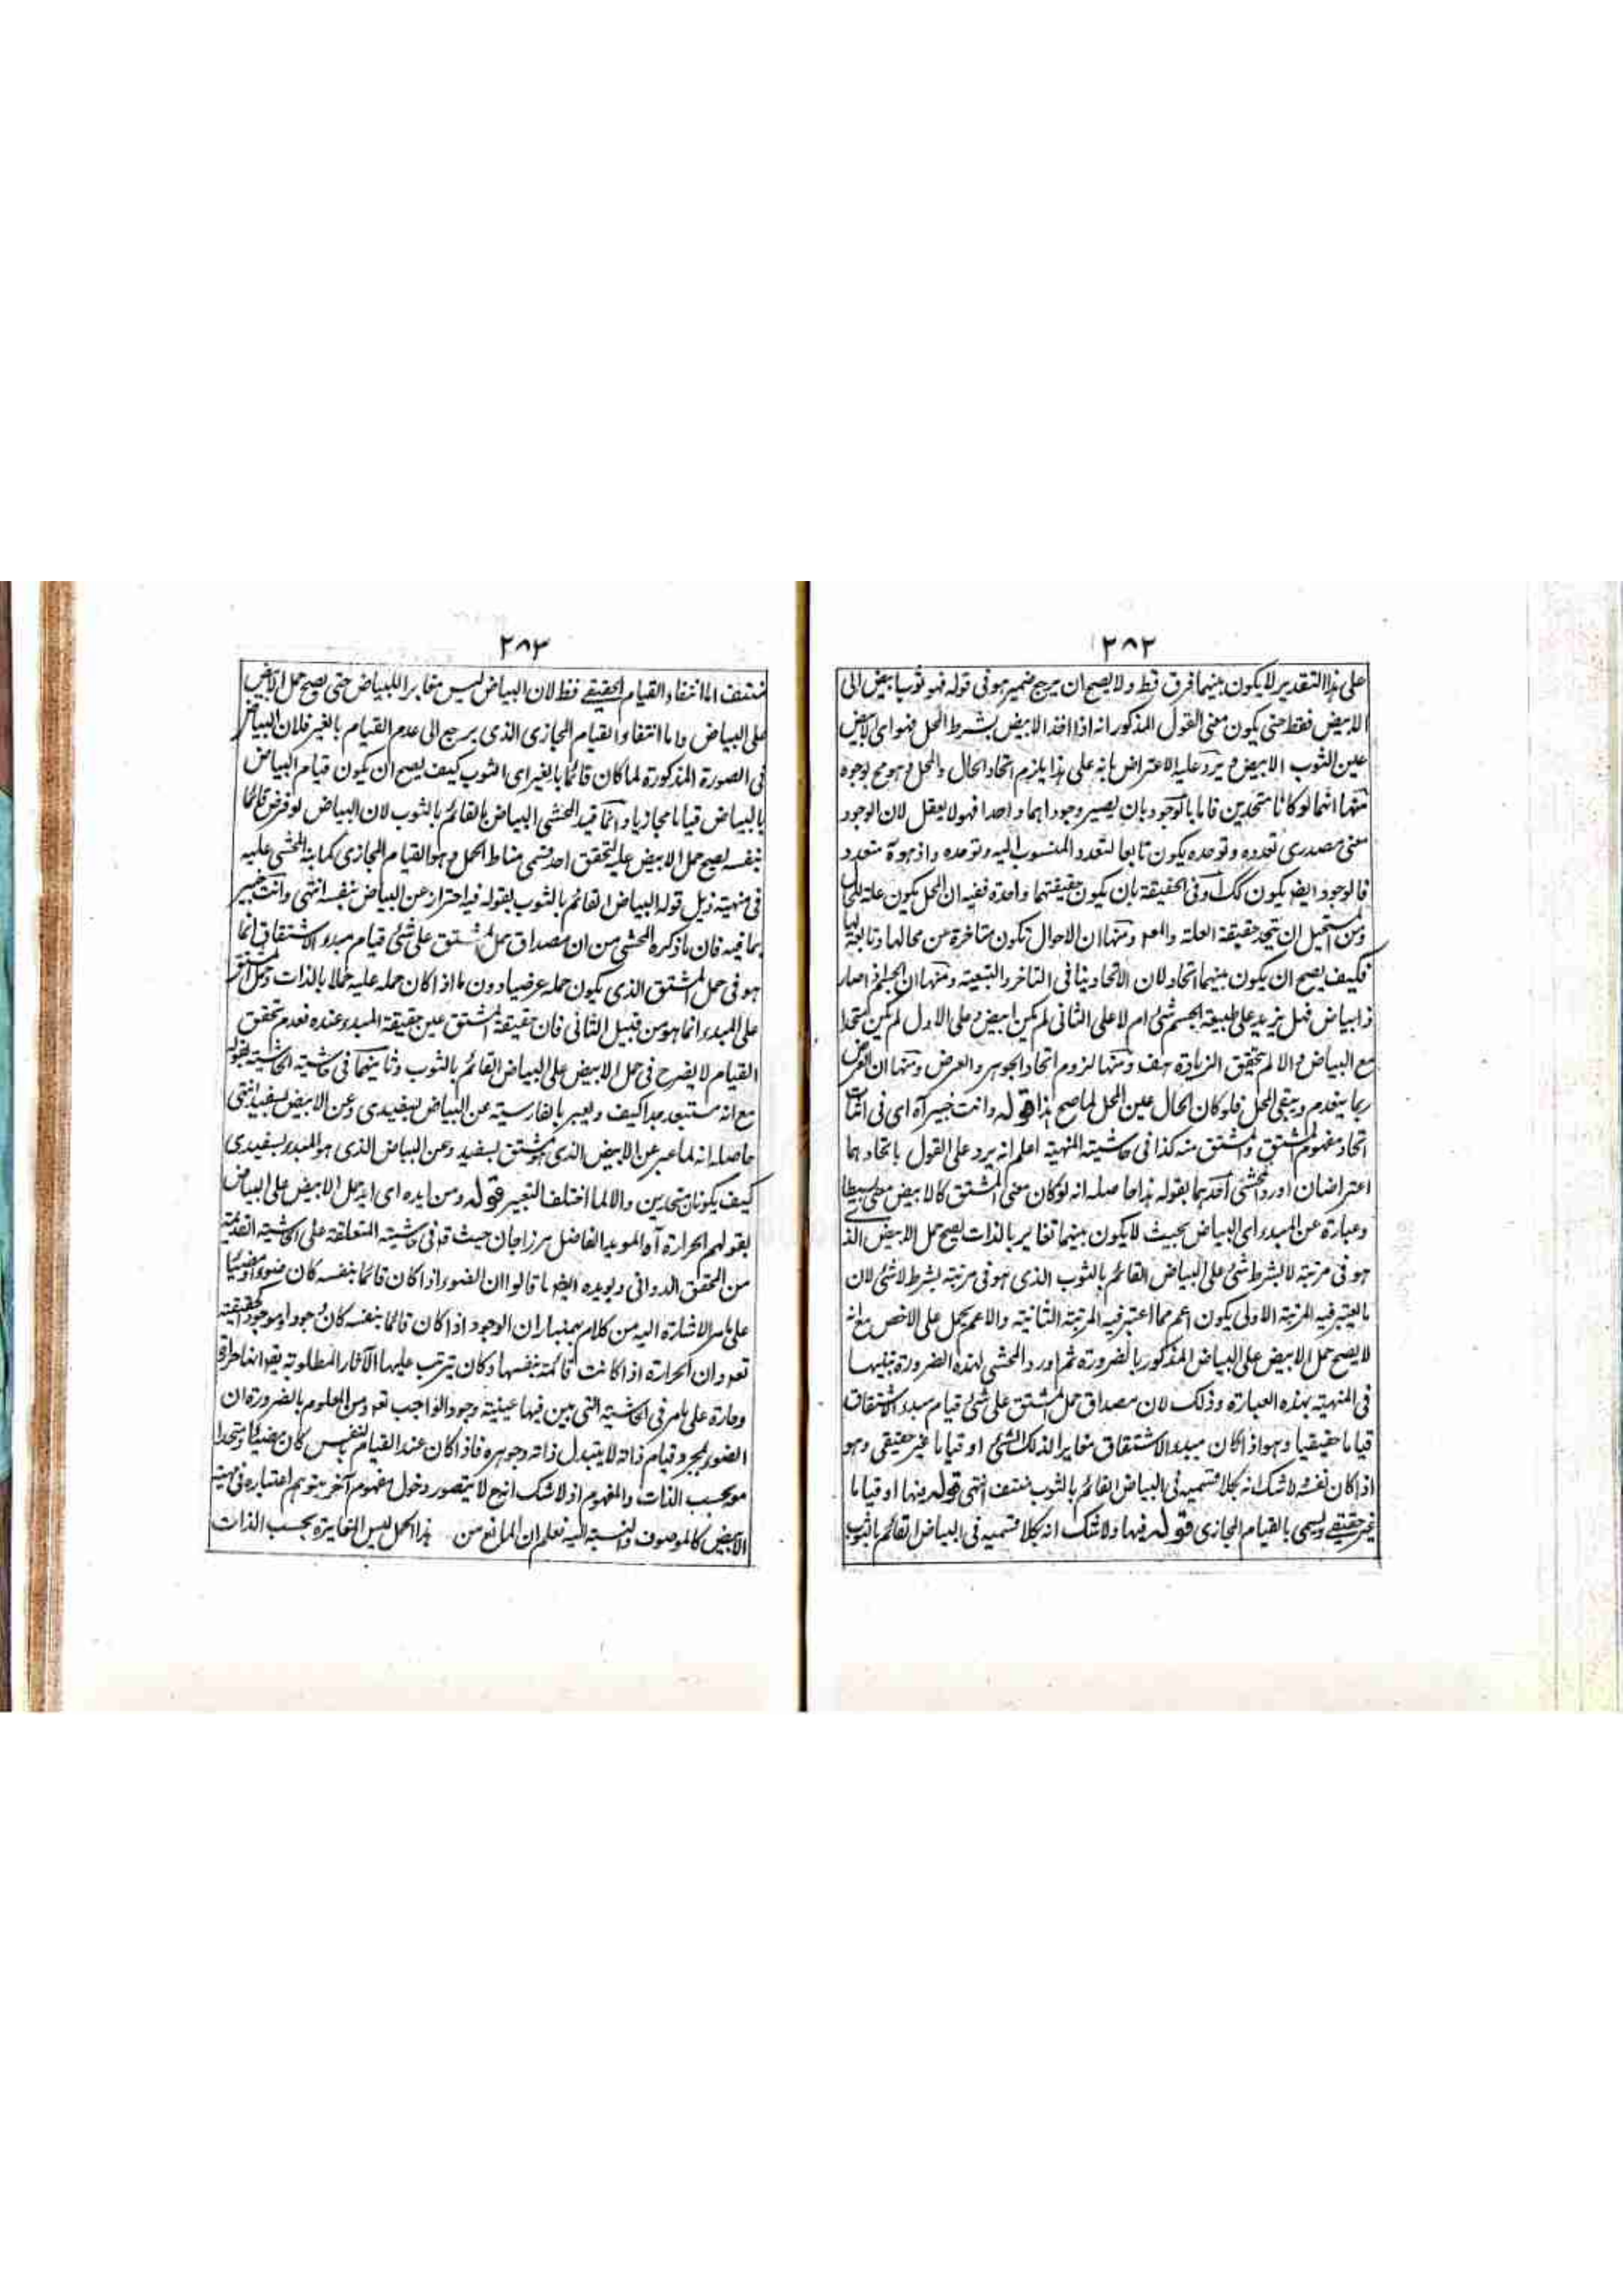 ٢٨٢
على هذا التقدير لا يكون بينهما فرق قط ولا يصح ان يرجع ضمير هو فى قوله فهو ثوب ابيض الى
الابيض فقط حتى يكون معنى القول المذكور انه اذا اخذ الابيض بشرط المحل فهو اى الابيض
عين الثوب الابيض و يرد عليه الاعتراض بانه على هذا يلزم اتحاد الحال والمحل وهو مح لوجوه
منها انهما لو كانا متحدين فاما بالوجود بان يصير وجوداهما واحدا فهو لا يعقل لان الوجود
معنى مصدرى تعدده وتوحده يكون تابعا لتعدد المنسوب اليه وتوحده واذ هو متعدد
فالوجود ايضا يكون كك او فى الحقيقة بان يكون حقيقتهما واحدة ففيه ان المحل يكون علة للحال
ومن المستحيل ان يتحد حقيقة العلة والمعلول ومنها ان الاحوال تكون متاخرة عن محالها وتابعة لها
فكيف يصح ان يكون بينهما اتحاد لان الاتحاد ينافى التاخر والتبعية ومنها ان الجسم اذا صار
ذا بياض فهل يزيد على طبيعة الجسم شئ ام لا على الثانى لم يكن ابيض وعلى الاول لم يكن متحدا
مع البياض والا لم يتحقق الزيادة هف ومنها لزوم اتحاد الجوهر والعرض ومنها ان العرض
ربما ينعدم ويبقى المحل فلو كان الحال عين المحل لما صح هذا قوله وانت خبير آه اى فى اثبات
اتحاد مفهوم المشتق والمشتق منه كذا فى حاشيته المنهية اعلم انه يرد على القول باتحادهما
اعتراضان اورد المحشى احدهما بقوله هذا حاصله انه لو كان معنى المشتق كالابيض معنى بسيطا
وعبارة عن المبدء اى البياض بحيث لا يكون بينهما تغاير بالذات يصح حمل الابيض الذى
هو فى مرتبة لا بشرط شئ على البياض القائم بالثوب الذى هو فى مرتبة بشرط لا شئ لان
ما يعتبر فيه المرتبة الاولى يكون اعم مما اعتبر فيه المرتبة الثانية والاعم يحمل على الاخص مع انه
لا يصح حمل الابيض على البياض المذكور بالضرورة ثم اورد المحشى لهذه الضرورة تنبيها
فى المنهية بهذه العبارة وذلك لان مصداق حمل المشتق على شئ قيام مبدء الاشتقاق
قياما حقيقيا وهو اذا كان مبدء الاشتقاق مغايرا لذلك الشئ او قياما غير حقيقى وهو
اذا كان نفسه لا شك انه بكلا قسميه فى البياض القائم بالثوب منتف انتهى قوله فيها او قياما
غير حقيقى ويسمى بالقيام المجازى قوله فيها ولا شك انه بكلا قسميه فى البياض القائم بالثوب
٢٨٣
منتف اما انتفاء القيام الحقيقى فظ لان البياض ليس مغايرا للبياض حتى يصح حمل الابيض
على البياض واما انتفاء القيام المجازى الذى يرجع الى عدم القيام بالغير فلان البياض
فى الصورة المذكورة لما كان قائما بالغير اى الثوب كيف يصح ان يكون قيام البياض
بالبياض قياما مجازيا وانما قيد المحشى البياض بالقائم بالثوب لان البياض لو فرض قائما
بنفسه يصح حمل الابيض عليه لتحقق احد قسمى مناط الحمل وهو القيام المجازى كما نبه المحشى عليه
فى منهية ذيل قوله البياض القائم بالثوب بقوله فيه احتراز عن البياض بنفسه انتهى وانت خبير
بما فيه فان ما ذكره المحشى من ان مصداق حمل المشتق على شئ قيام مبدء الاشتقاق انما
هو فى حمل المشتق الذى يكون حمله عرضيا دون ما اذا كان حمله عليه حملا بالذات وحمل المشتق
على المبدء انما هو من قبيل الثانى فان حقيقة المشتق عين حقيقة المبدء عنده فعدم تحقق
القيام لا يضرح فى حمل الابيض على البياض القائم بالثوب وثانيهما فى حاشية الحاشية بقوله
مع انه مستبعد جدا كيف ويعبر بالفارسية عن البياض بسفيدى وعن الابيض بسفيد انتهى
حاصله انه لما عبر عن الابيض الذى هو المشتق بسفيد وعن البياض الذى هو المبدء بسفيدى
كيف يكونان متحدين والا لما اختلف التعبير قوله ومن ايده اى ايد حمل الابيض على البياض
بقولهم الحرارة آه المويد الفاضل مرزاجان حيث قال فى حاشيته المتعلقة على الحاشية القديمة
من المحقق الدوانى ويويده ايضا ما قالوا ان الضوء اذا كان قائما بنفسه كان ضوء ومضيئا
على ما مر الاشارة اليه من كلام بهمنيار ان الوجود اذا كان قائما بنفسه كان وجودا وموجودا كحقيقته
تعه وان الحرارة اذا كانت قائمة بنفسها وكان يترتب عليها الآثار المطلوبة يقم انها حرارة
وحارة على ما مر فى الحاشية التى بين فيها عينية وجود الواجب تعه ومن المعلوم بالضرورة ان
الضوء بمجرد قيام ذاته لا يتبدل ذاته وجوهره فاذا كان عند القيام بالنفس كان مضيئا ومتحدا
معه بحسب الذات والمفهوم اذ لا شك انه ح لا يتصور دخول مفهوم آخر يتوهم اعتباره فى مهية
الابيض كالموصوف والنسبة اليه فعلم ان المانع من هذا الحمل ليس التغاير بحسب الذات